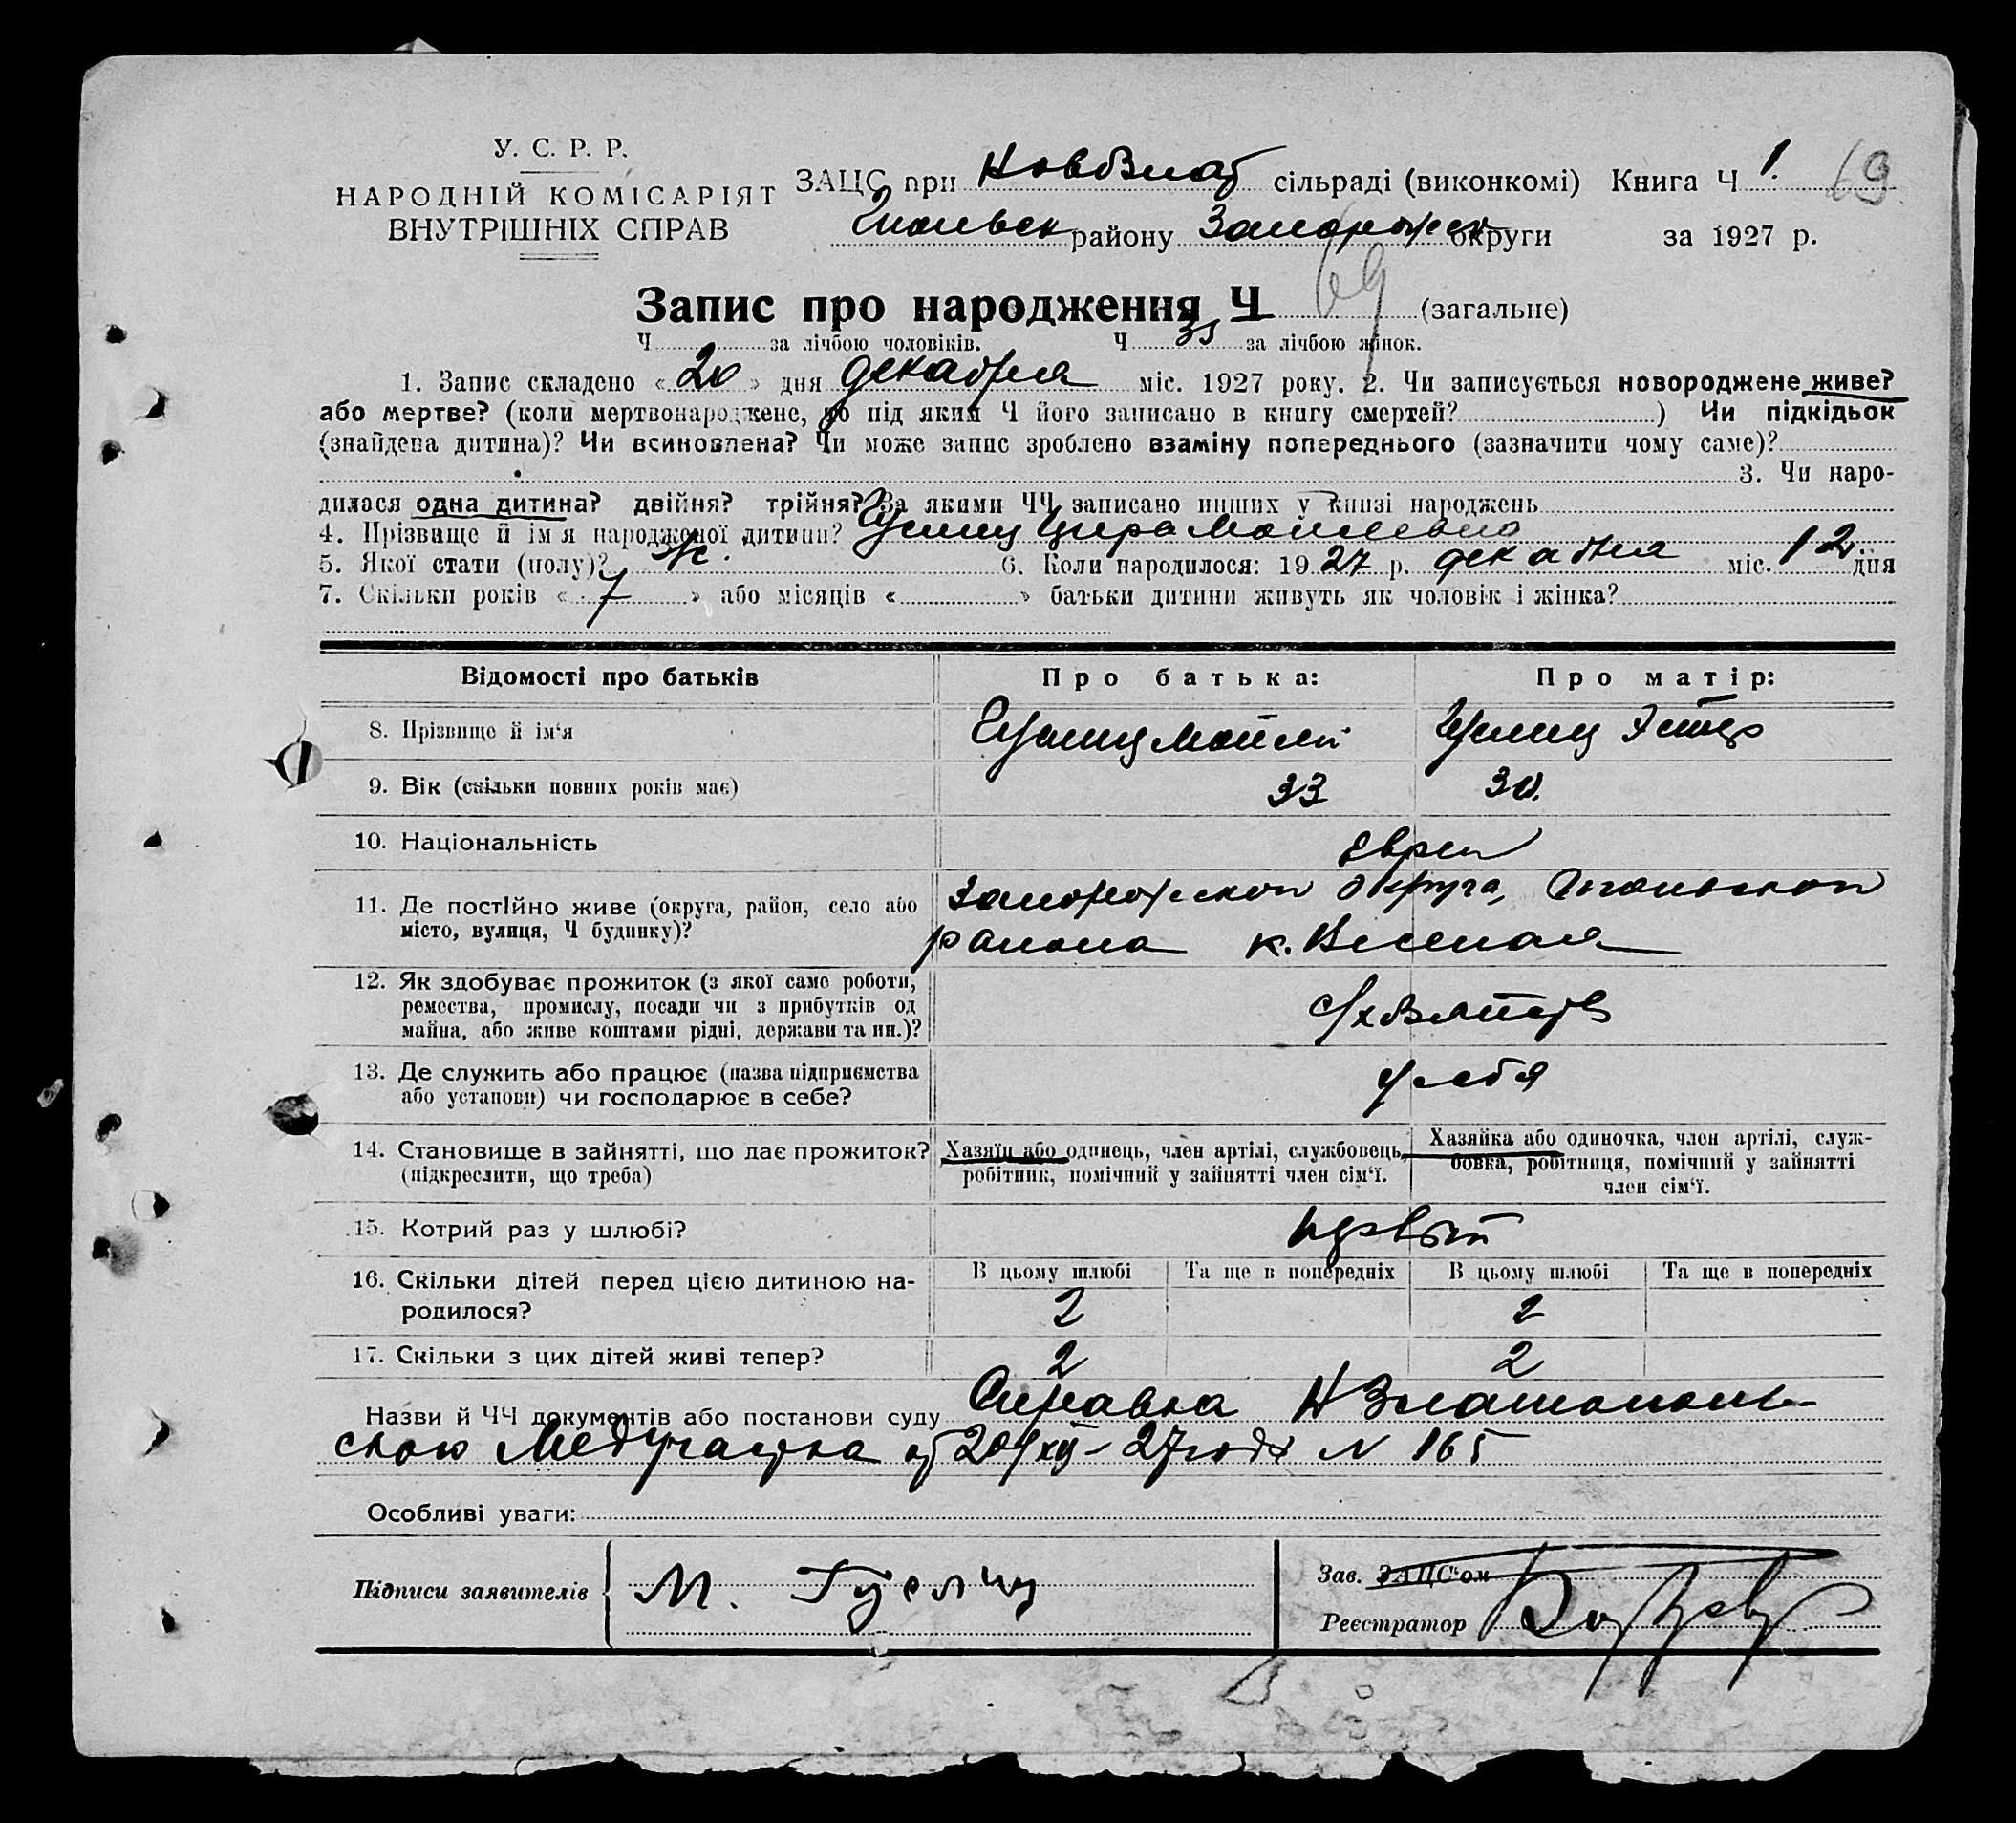 У. С. Р. Р.
НАРОДНІЙ КОМІСАРІЯТ
ВНУТРІШНІХ СПРАВ
ЗАЦС при НовВлаг сільраді (виконкомі) Книга Ч 1. 69
району Запорожск округи за 1927 р.
Запис про народження Ч 69 (загальне)
Ч за лічбою чоловіків. Ч 35 за лічбою жінок.
1. Запис складено « 20 » дня декабря міс. 1927 року. 2. Чи записується новороджене живе?
або мертве? (коли мертвонароджене, то під яким Ч його записано в книгу смертей? ) Чи підкідьок
(знайдена дитина)? Чи всиновлена? Чи може запис зроблено взаміну попереднього (зазначити чому саме)?
3. Чи наро-
дилася одна дитина? двійня? трійня? За якими ЧЧ записано инших у книзі народжень
4. Прізвище й ім'я народженої дитини? Гуелиц Цира Мойшевна
5. Якої стати (полу)? ж. 6. Коли народилося: 19 27 р. декабря міс. 12 дня
7. Скільки років « 7 » або місяців « » батьки дитини живуть як чоловік і жінка?
Відомості про батьків Про батька: Про матір:
8. Прізвище й ім'я Гуелиц Мойсей Гуелиц Эстер
9. Вік (скільки повних років має) 33 30.
10. Національність Евреи
11. Де постійно живе (округа, район, село або Запорожской округа,
місто, вулиця, Ч будинку)? района к. Веселая
12. Як здобуває прожиток (з якої саме роботи,
ремества, промислу, посади чи з прибутків од
майна, або живе коштами рідні, держави та ин.)?
13. Де служить або працює (назва підприємства у себя
або установи) чи господарює в себе?
14. Становище в зайнятті, що дає прожиток? Хазяїн або одинець, член артілі, службовець, Хазяйка або одиночка, член артілі, служ-
(підкреслити, що треба) робітник, помічний у зайнятті член сім'ї. бовка, робітниця, помічний у зайнятті
член сім'ї.
15. Котрий раз у шлюбі? первый
16. Скільки дітей перед цією дитиною на- В цьому шлюбі Та ще в попередніх В цьому шлюбі Та ще в попередніх
родилося? 2 2
17. Скільки з цих дітей живі тепер? 2 2
Назви й ЧЧ документів або постанови суду Справка Н Златополь-
ского Медучастка от 20/XII-27 года N 165
Особливі уваги:
Підписи заявителів М. Гуелиц Зав. ЗАЦС'ом
Реєстратор